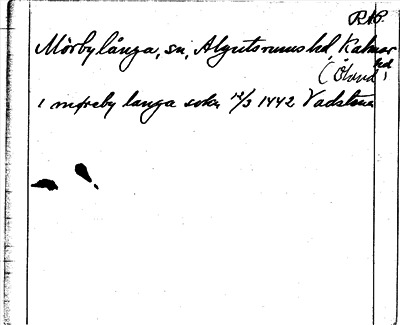 RAP.
Mörbylånga, sn, Algutsrums hd, Kalmar
(Öland)
i møreby langa sokn 12/3 1442 Vadstena